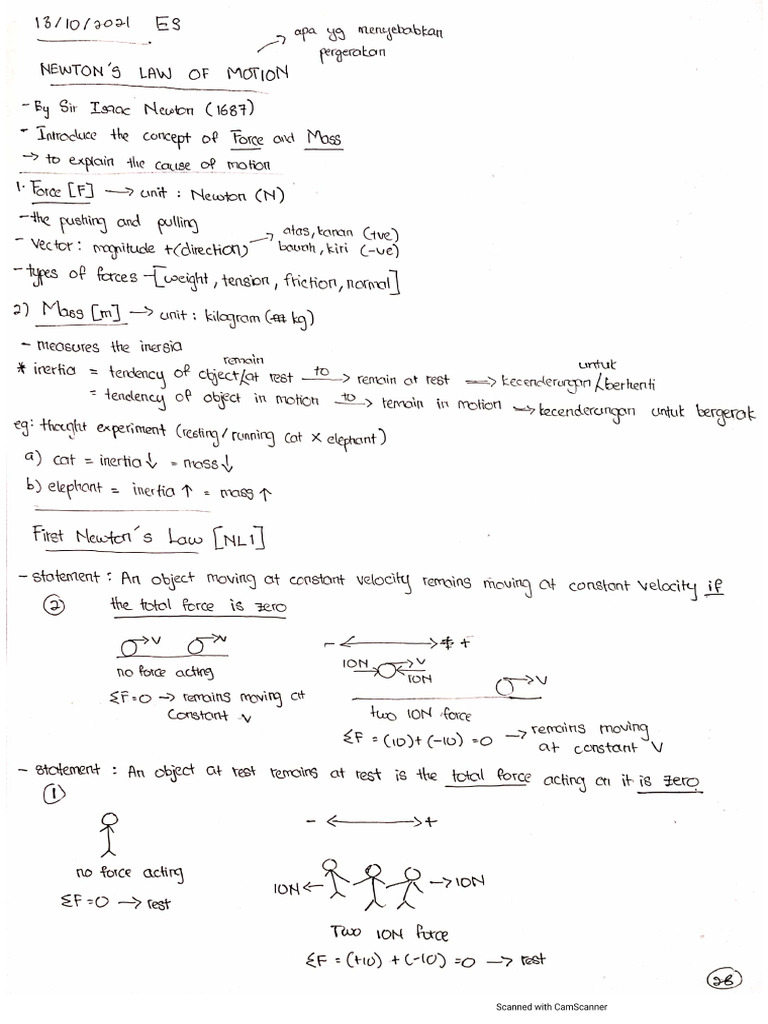 13/10/2021 E3
apa yg menyebabkan
pergerakan
NEWTON'S LAW OF MOTION
- By Sir Isaac Newton (1687)
- Introduce the concept of Force and Mass
→ to explain the cause of motion
1. Force [F] → unit : Newton (N)
- the pushing and pulling
- vector : magnitude + (direction) → atas, kanan (+ve)
bawah, kiri (-ve)
- types of forces - [weight, tension, friction, normal]
2) Mass [m] → unit : kilogram (kg)
- measures the inersia
* inertia = tendency of object/at rest to → remain at rest → kecenderungan / berhenti
remain
untuk
= tendency of object in motion to → remain in motion → kecenderungan untuk bergerak
eg: thought experiment (resting / running cat x elephant)
a) cat = inertia ↓ = mass ↓
b) elephant = inertia ↑ = mass ↑
First Newton's Law [NL1]
- statement : An object moving at constant velocity remains moving at constant velocity if
② the total force is zero
→V →V
no force acting
ΣF=0 → remains moving at
constant v
- ↔ +
10N →V
10N
→V
two 10N force
ΣF = (10) + (-10) = 0 → remains moving
at constant V
- statement : An object at rest remains at rest is the total force acting on it is zero.
①
no force acting
ΣF=0 → rest
- ↔ +
10N ← → 10N
Two 10N force
ΣF = (+10) + (-10) = 0 → rest
28
Scanned with CamScanner